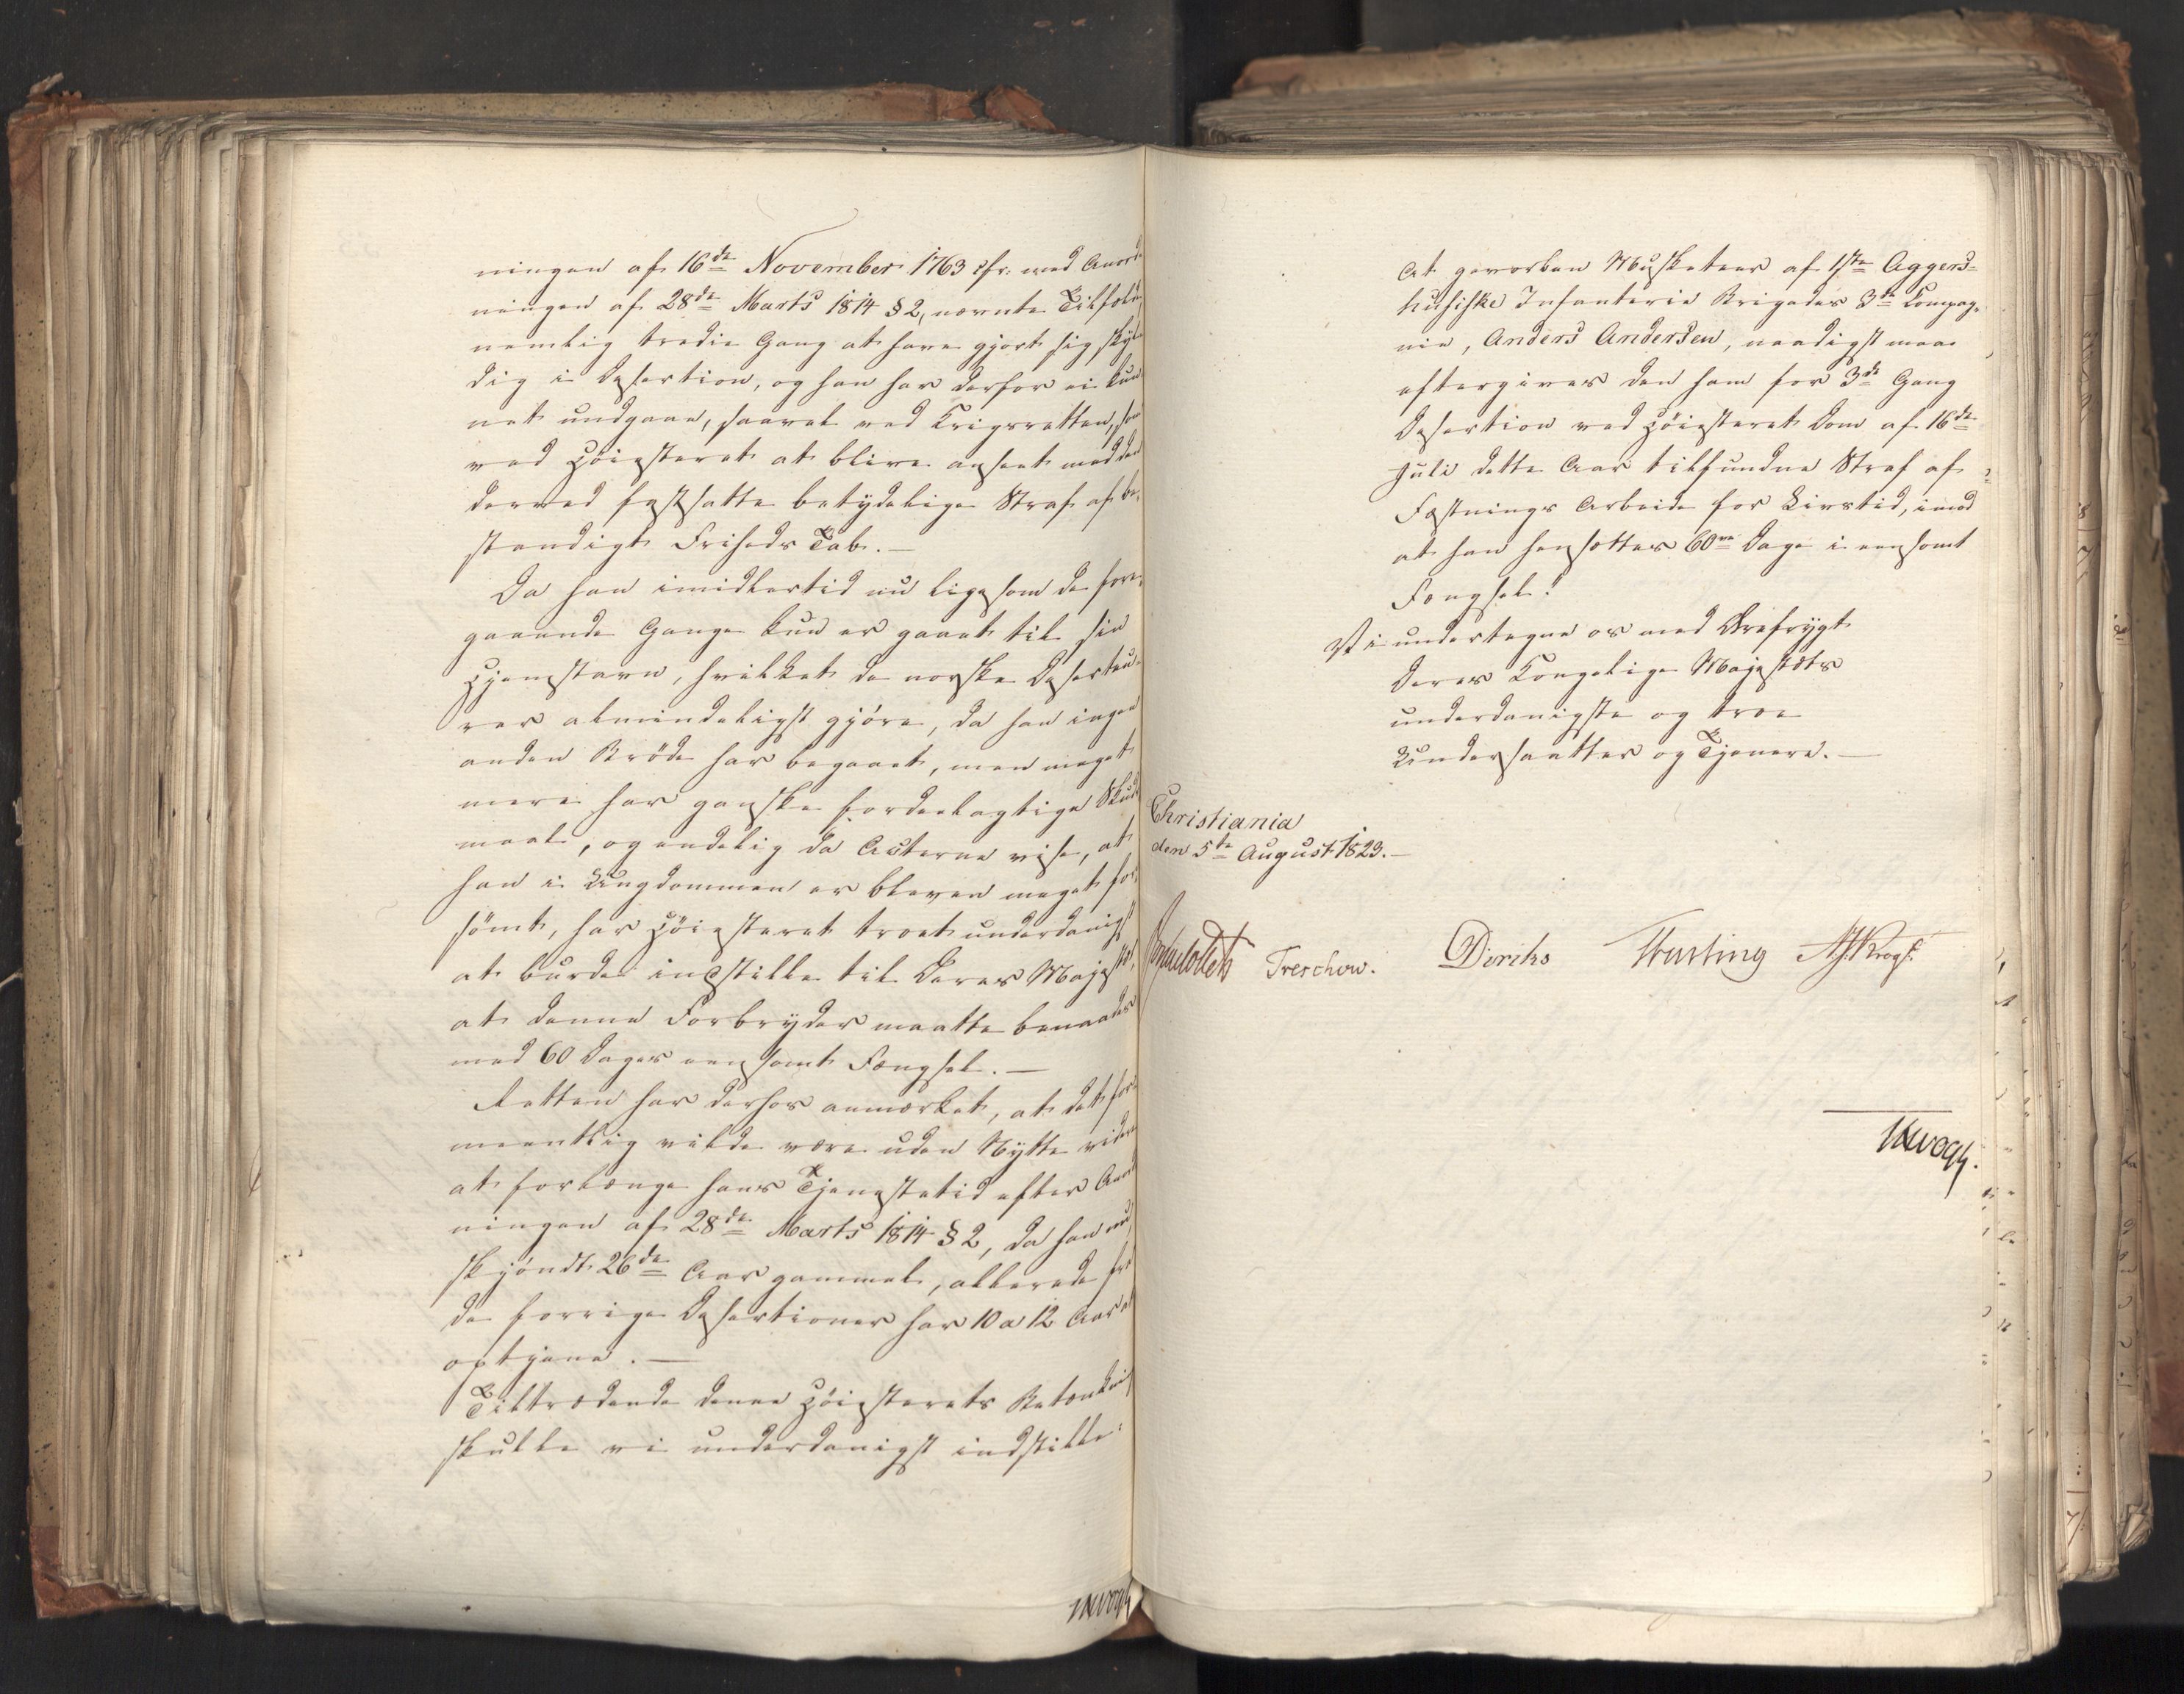 ningen af 16de November 1763 cfr. med Anord-
ningen af 28de Marts 1814 § 2, nævnte Tilfælde
nemlig tredie Gang at have gjort sig skyl-
dig i Desertion, og han har derfor ei kun-
net undgaae, saavel ved Krigsretten, som
ved Höiesteret at blive anseet med den
derved fastsatte betydelige Straf af be-
standigt Friheds Tab. —
Da han imidlertid nu ligesom de fore-
gaaende Gange kun er gaaet til sin
Hjemstavn, hvilket de norske Deserteu-
rer almindeligst gjöre, da han ingen
anden Bröde har begaaet, men meget
mere har ganske fordeelagtige Skuds-
maal, og endelig da Acterne vise, at
han i Ungdommen er bleven meget for-
sömt, har Höiesteret troet underdanigst
at burde indstille til Deres Majestæt,
at denne Forbryder maatte benaades
med 60 Dages eensomt Fængsel. —
Retten har derhos anmærket, at det for-
meentlig vilde være uden Nytte videre
at forlænge hans Tjenestetid efter Anord-
ningen af 28de Marts 1814 § 2, da han nu,
skjöndt 26de Aar gammel, allerede for
de forrige Desertioner har 10 a 12 Aar at
optjene. —
Tiltrædende denne Höiesterets Betænkning
skulle vi underdanigst indstille:
At gevorben Musketeer af 1ste Aggers-
husiske Infanterie Brigades 3de Compag-
nie, Anders Andersen, naadigst maae
eftergives den ham for 3de Gang
Desertion ved Höiesterets Dom af 16de
Juli dette Aar tilfundne Straf af
Fæstnings Arbeide for Livstid, imod
at han hensættes 60ve Dage i eensomt
Fængsel!
Vi undertegne os med Ærefrygt
Deres Kongelige Majestæts
underdanigste og troe
Undersaatter og Tjenere. —
Christiania
den 5te August 1823. —
Treschow. Diriks Fasting Krogh.